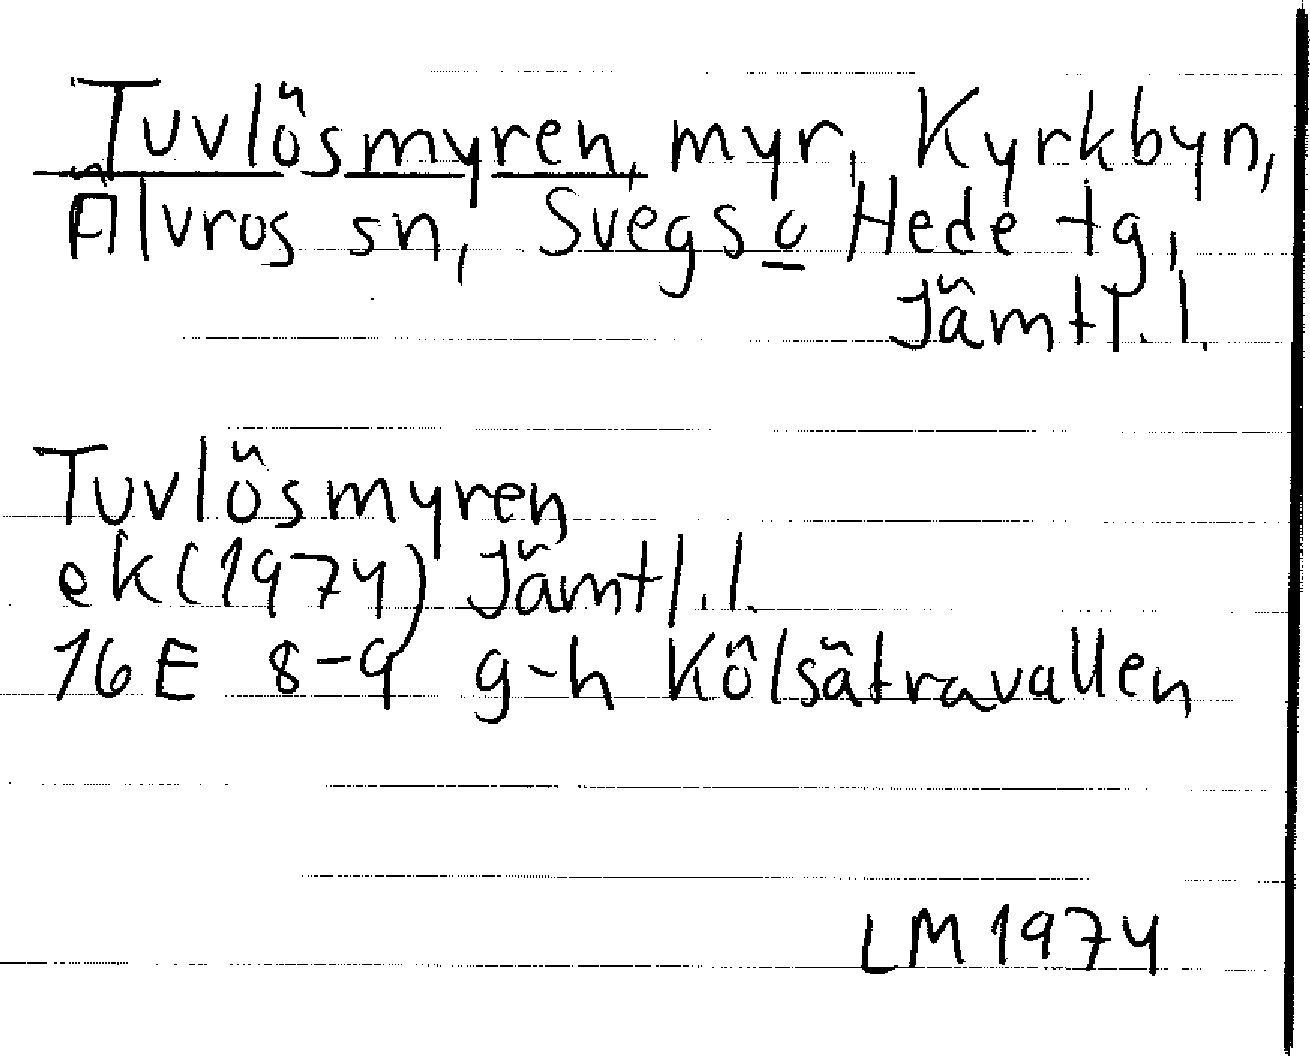 Tuvlösmyren, myr, Kyrkbyn,
Älvros sn, Svegs o Hede tg,
Jämtl. l.
Tuvlösmyren
ek (1974) Jämtl. l.
16E 8-9 g-h Kölsätravallen
LM 1974